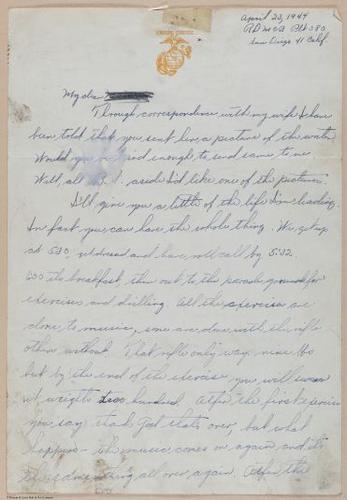 April 23, 1944
RDMCB Plt 380
San Diego 41 Calif.
My dear
Through correspondence with my wife I have
been told that you sent her a picture of the
Would you be kind enough to send same to me
Well, all aside I'd like one of the pictures.
I'll give you a little of the life I'm leading.
In fact you can have the whole thing. We get up
at 530 get dressed and have roll call by 5:32.
600 its breakfast, then out to the parade grounds for
exercises and drilling. All the exercise are
done to music, some are done with the rifle
others without. That rifle only way nine lbs
but by the end of the exercise you will swear
it weights two hundred. After the first exercise
you say thank God thats over, but what
happens the music comes on again and its
the same thing all over again. After the